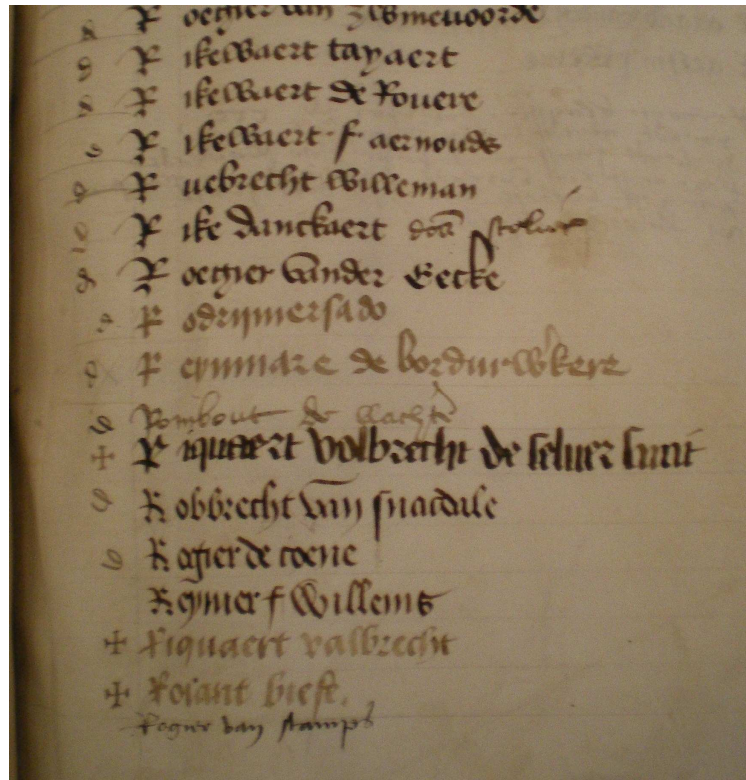 R oegier van zwmenoorde
d R ikewaert tayaert
d R ikewaert de Rouere
d R ikewaert f aernouds
d R uebrecht willeman
d R ike danckaert
d R oegier vander Eecke
d R odrijmersado
d R eynmare de bordurwkere
d Rombout de wachte
+ R iquaert volbrecht de seluer smit
d R obbrecht van snacdale
d R ogier de coene
R eynier f willems
+ Riquaert valbrecht
+ Rolant bieft.
Rogier van stamps